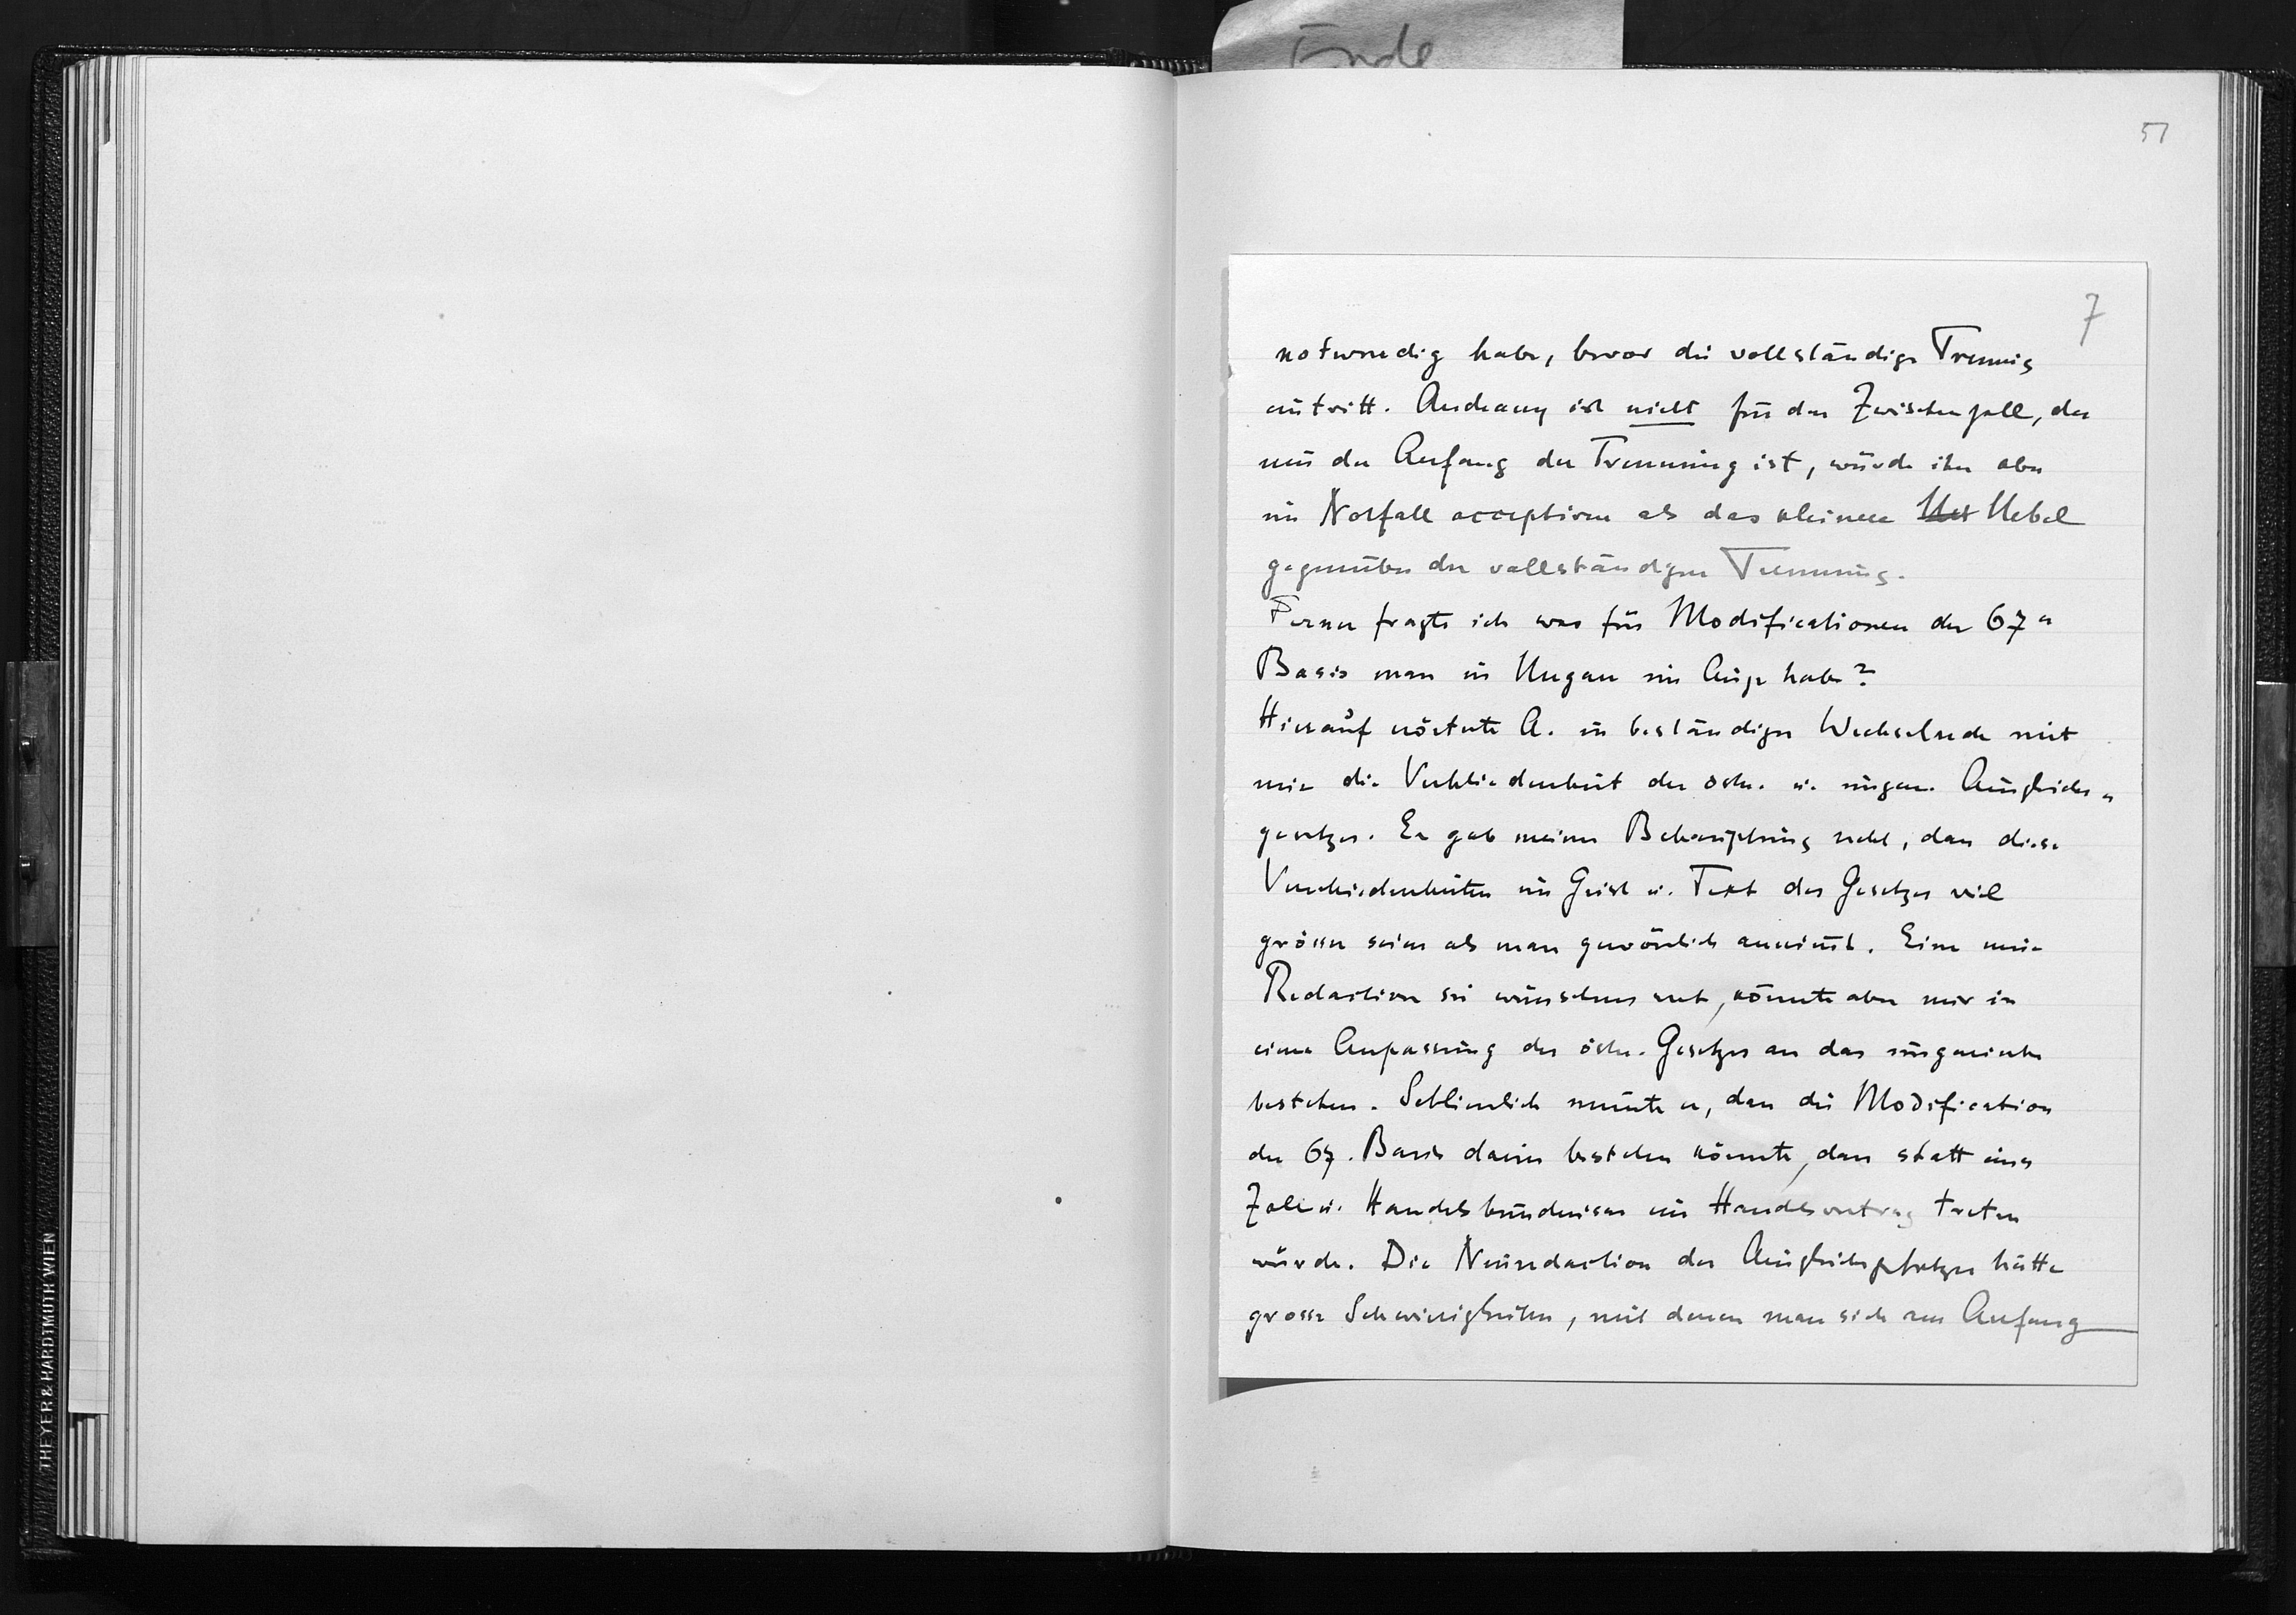 Ende
51
7
notwendig habe, bevor die vollständige Trennung
eintritt. Andrassy ist nicht für den Zwischenfall, der
nur der Anfang der Trennung ist, würde ihn aber
im Notfall acceptiren als das kleinere Uebel
gegenüber der vollständigen Trennung.
Ferner fragte ich was für Modificationen der 67 er
Basis man in Ungarn im Auge habe?
Hierauf erörterte A. in beständiger Wechselrede mit
mir die Verschiedenheit der östr. u. ungar. Ausgleichs-
gesetzes. Er gab meiner Behauptung recht, dass diese
Verschiedenheiten im Geist u. Text des Gesetzes viel
grösser seien als man gewönlich annimt. Eine neue
Redaction sei wünschenswert, könnte aber nur in
einer Anpassung des östr. Gesetzes an das ungarische
bestehen. Schliesslich meinte er, dass die Modification
der 67. Basis darin bestehen könnte, dass statt eines
Zoll u. Handelsbündnisses ein Handelsvertrag treten
würde. Die Neuredaction des Ausgleichsgesetzes hätte
grosse Schwierigkeiten, mit denen man sich am Anfang
THEYER & HARDTMUTH WIEN